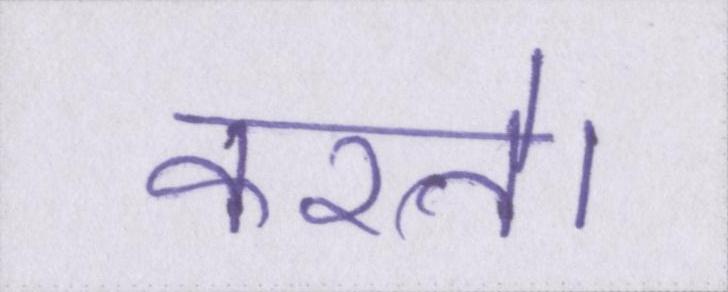 करते।